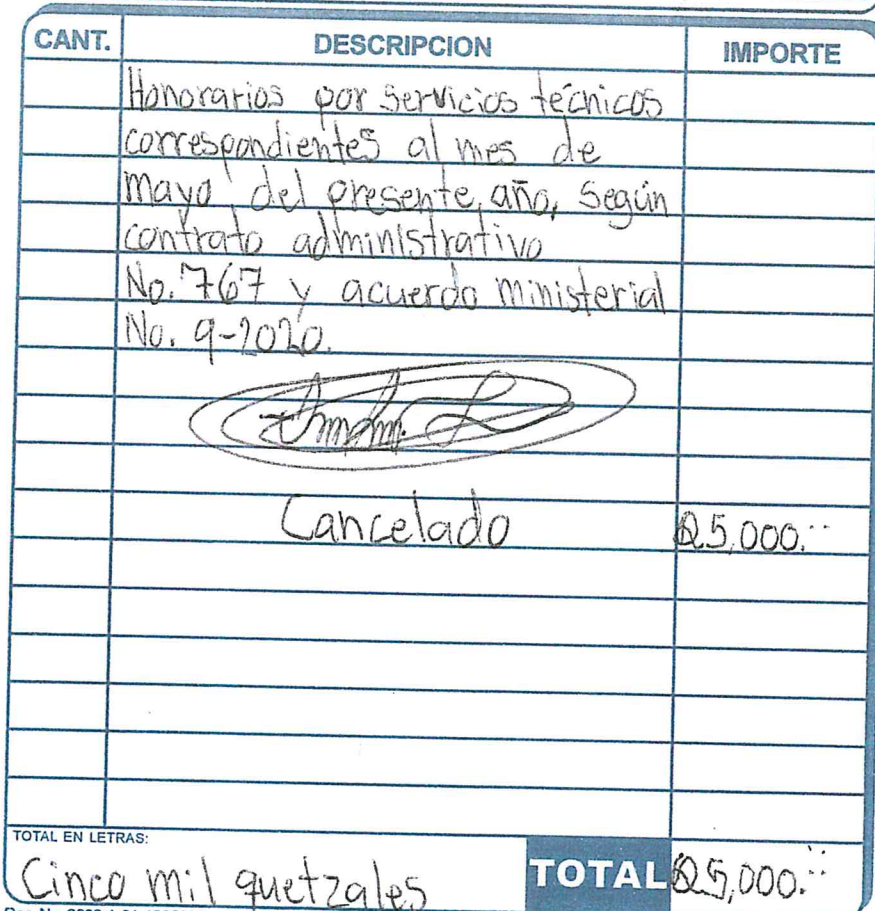 CANT. DESCRIPCION IMPORTE
Honorarios por servicios técnicos
correspondientes al mes de
mayo del presente año, según
contrato administrativo
No. 767 y acuerdo ministerial
No. 9-2020.
Cancelado Q5,000.--
TOTAL EN LETRAS:
Cinco mil quetzales TOTAL Q5,000.--